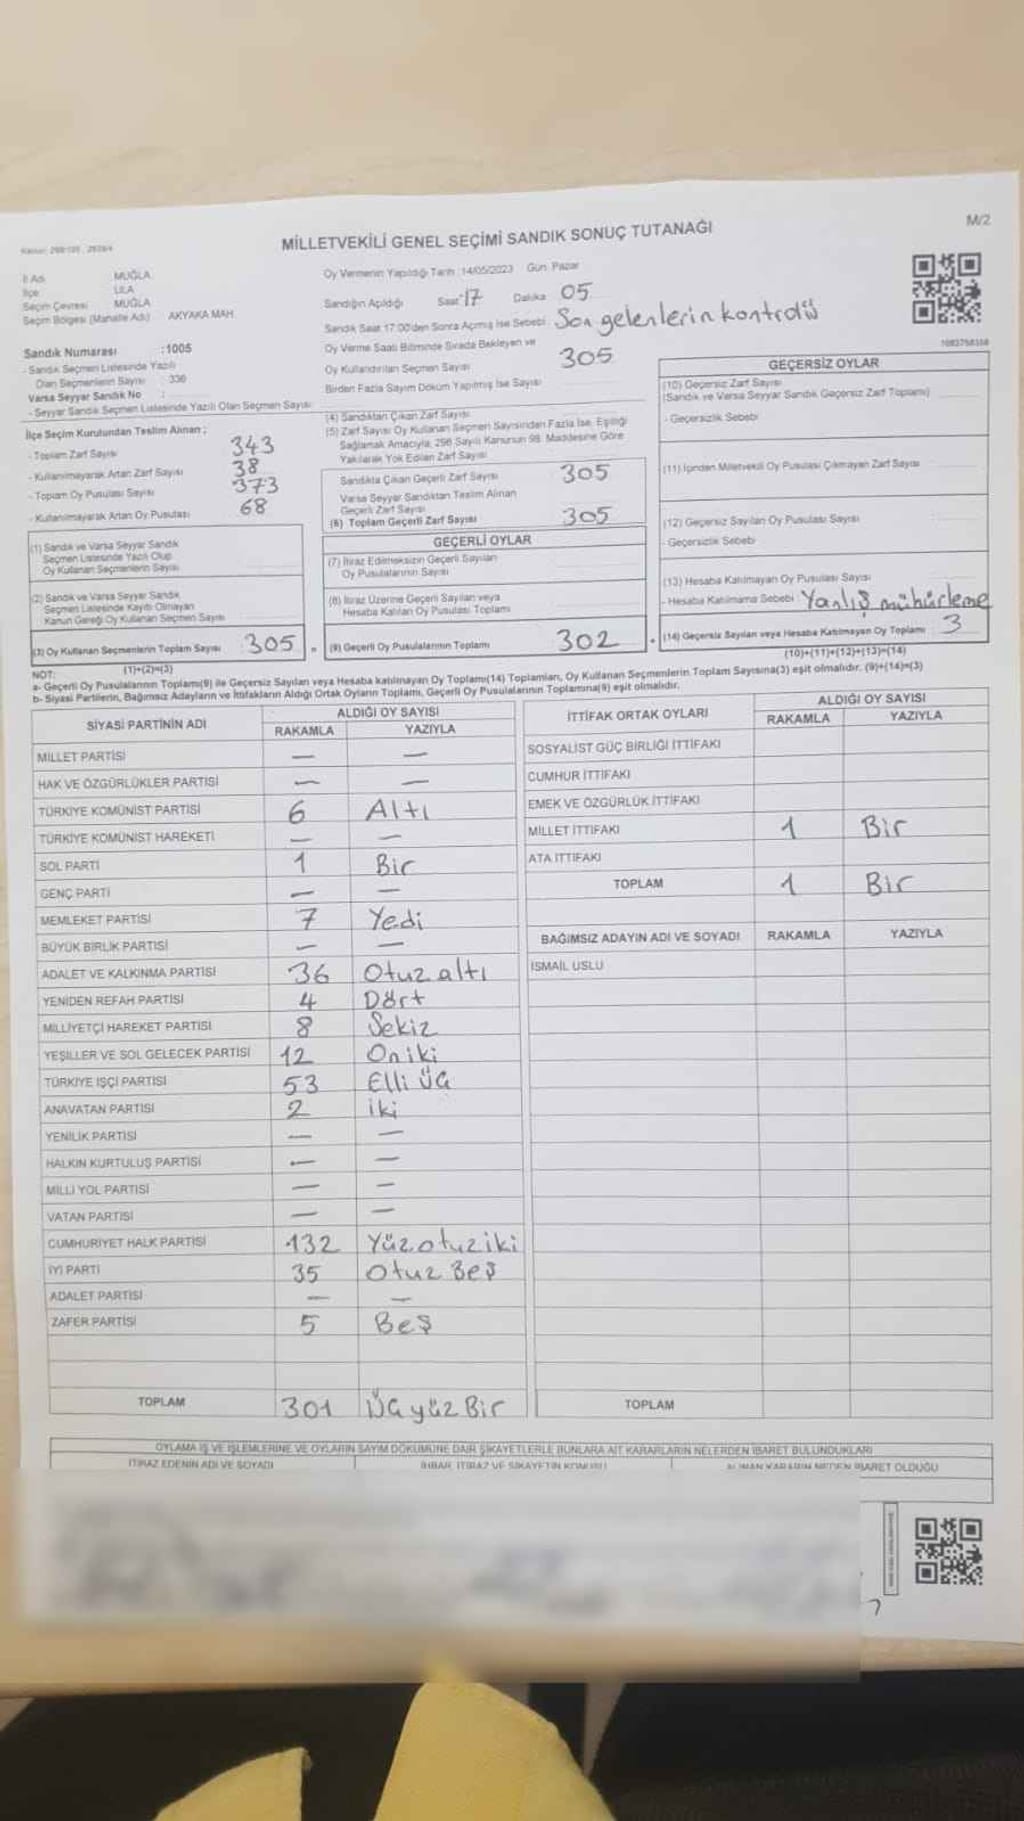 M/2
MİLLETVEKİLİ GENEL SEÇİMİ SANDIK SONUÇ TUTANAĞI
İl Adı MUĞLA
İlçe ULA
Seçim Çevresi MUĞLA
Seçim Bölgesi (Mahalle Adı) AKYAKA MAH.
Sandık Numarası :1005
- Sandık Seçmen Listesinde Yazılı
Olan Seçmenlerin Sayısı : 336
Varsa Seyyar Sandık No :
- Seyyar Sandık Seçmen Listesinde Yazılı Olan Seçmen Sayısı
İlçe Seçim Kurulundan Teslim Alınan ;
- Toplam Zarf Sayısı 343
- Kullanılmayarak Artan Zarf Sayısı 38
- Toplam Oy Pusulası Sayısı 373
- Kullanılmayarak Artan Oy Pusulası 68
(1) Sandık ve Varsa Seyyar Sandık
Seçmen Listesinde Yazılı Olup
Oy Kullanan Seçmenlerin Sayısı
(2) Sandık ve Varsa Seyyar Sandık
Seçmen Listesinde Kayıtlı Olmayan
Kanun Gereği Oy Kullanan Seçmen Sayısı
(3) Oy Kullanan Seçmenlerin Toplam Sayısı 305 =
(1)+(2)=(3)
Oy Vermenin Yapıldığı Tarih :14/05/2023 Gün: Pazar
Sandığın Açıldığı Saat 17 Dakika 05
Sandık Saat 17:00'den Sonra Açmış İse Sebebi Son gelenlerin kontrolü
Oy Verme Saati Bitiminde Sırada Bekleyen ve
Oy Kullandırılan Seçmen Sayısı 305
Birden Fazla Sayım Döküm Yapılmış İse Sayısı
(4) Sandıktan Çıkan Zarf Sayısı
(5) Zarf Sayısı Oy Kullanan Seçmen Sayısından Fazla İse, Eşitliği
Sağlamak Amacıyla, 298 Sayılı Kanunun 98. Maddesine Göre
Yakılarak Yok Edilen Zarf Sayısı
Sandıkta Çıkan Geçerli Zarf Sayısı 305
Varsa Seyyar Sandıktan Teslim Alınan
Geçerli Zarf Sayısı
(6) Toplam Geçerli Zarf Sayısı 305
GEÇERLİ OYLAR
(7) İtiraz Edilmeksizin Geçerli Sayılan
Oy Pusulalarının Sayısı
(8) İtiraz Üzerine Geçerli Sayılan veya
Hesaba Katılan Oy Pusulası Toplamı
(9) Geçerli Oy Pusulalarının Toplamı 302 +
1083758358
GEÇERSİZ OYLAR
(10) Geçersiz Zarf Sayısı
(Sandık ve Varsa Seyyar Sandık Geçersiz Zarf Toplamı)
- Geçersizlik Sebebi
(11) İçinden Milletvekili Oy Pusulası Çıkmayan Zarf Sayısı
(12) Geçersiz Sayılan Oy Pusulası Sayısı
- Geçersizlik Sebebi
(13) Hesaba Katılmayan Oy Pusulası Sayısı
- Hesaba Katılmama Sebebi Yanlış mühürleme
(14) Geçersiz Sayılan veya Hesaba Katılmayan Oy Toplamı 3
(10)+(11)+(12)+(13)=(14)
NOT:
a- Geçerli Oy Pusulalarının Toplamı(9) ile Geçersiz Sayılan veya Hesaba katılmayan Oy Toplamı(14) Toplamları, Oy Kullanan Seçmenlerin Toplam Sayısına(3) eşit olmalıdır. (9)+(14)=(3)
b- Siyasi Partilerin, Bağımsız Adayların ve İttifakların Aldığı Ortak Oyların Toplamı, Geçerli Oy Pusulalarının Toplamına(9) eşit olmalıdır.
SİYASİ PARTİNİN ADI ALDIĞI OY SAYISI
RAKAMLA YAZIYLA
MİLLET PARTİSİ — —
HAK VE ÖZGÜRLÜKLER PARTİSİ — —
TÜRKİYE KOMÜNİST PARTİSİ 6 Altı
TÜRKİYE KOMÜNİST HAREKETİ — —
SOL PARTİ 1 Bir
GENÇ PARTİ — —
MEMLEKET PARTİSİ 7 Yedi
BÜYÜK BİRLİK PARTİSİ — —
ADALET VE KALKINMA PARTİSİ 36 Otuz altı
YENİDEN REFAH PARTİSİ 4 Dört
MİLLİYETÇİ HAREKET PARTİSİ 8 Sekiz
YEŞİLLER VE SOL GELECEK PARTİSİ 12 On iki
TÜRKİYE İŞÇİ PARTİSİ 53 Elli üç
ANAVATAN PARTİSİ 2 iki
YENİLİK PARTİSİ — —
HALKIN KURTULUŞ PARTİSİ — —
MİLLİ YOL PARTİSİ — —
VATAN PARTİSİ — —
CUMHURİYET HALK PARTİSİ 132 Yüz otuz iki
İYİ PARTİ 35 Otuz Beş
ADALET PARTİSİ — —
ZAFER PARTİSİ 5 Beş
TOPLAM 301 Üç yüz Bir
İTTİFAK ORTAK OYLARI ALDIĞI OY SAYISI
RAKAMLA YAZIYLA
SOSYALİST GÜÇ BİRLİĞİ İTTİFAKI
CUMHUR İTTİFAKI
EMEK VE ÖZGÜRLÜK İTTİFAKI
MİLLET İTTİFAKI 1 Bir
ATA İTTİFAKI
TOPLAM 1 Bir
BAĞIMSIZ ADAYIN ADI VE SOYADI RAKAMLA YAZIYLA
İSMAİL USLU
TOPLAM
OYLAMA İŞ VE İŞLEMLERİNE VE OYLARIN SAYIM DÖKÜMÜNE DAİR ŞİKAYETLERLE BUNLARA AİT KARARLARIN NELERDEN İBARET BULUNDUKLARI
İTİRAZ EDENİN ADI VE SOYADI İHBAR, İTİRAZ VE ŞİKAYETİN KONUSU ALINAN KARARIN NEDEN İBARET OLDUĞU